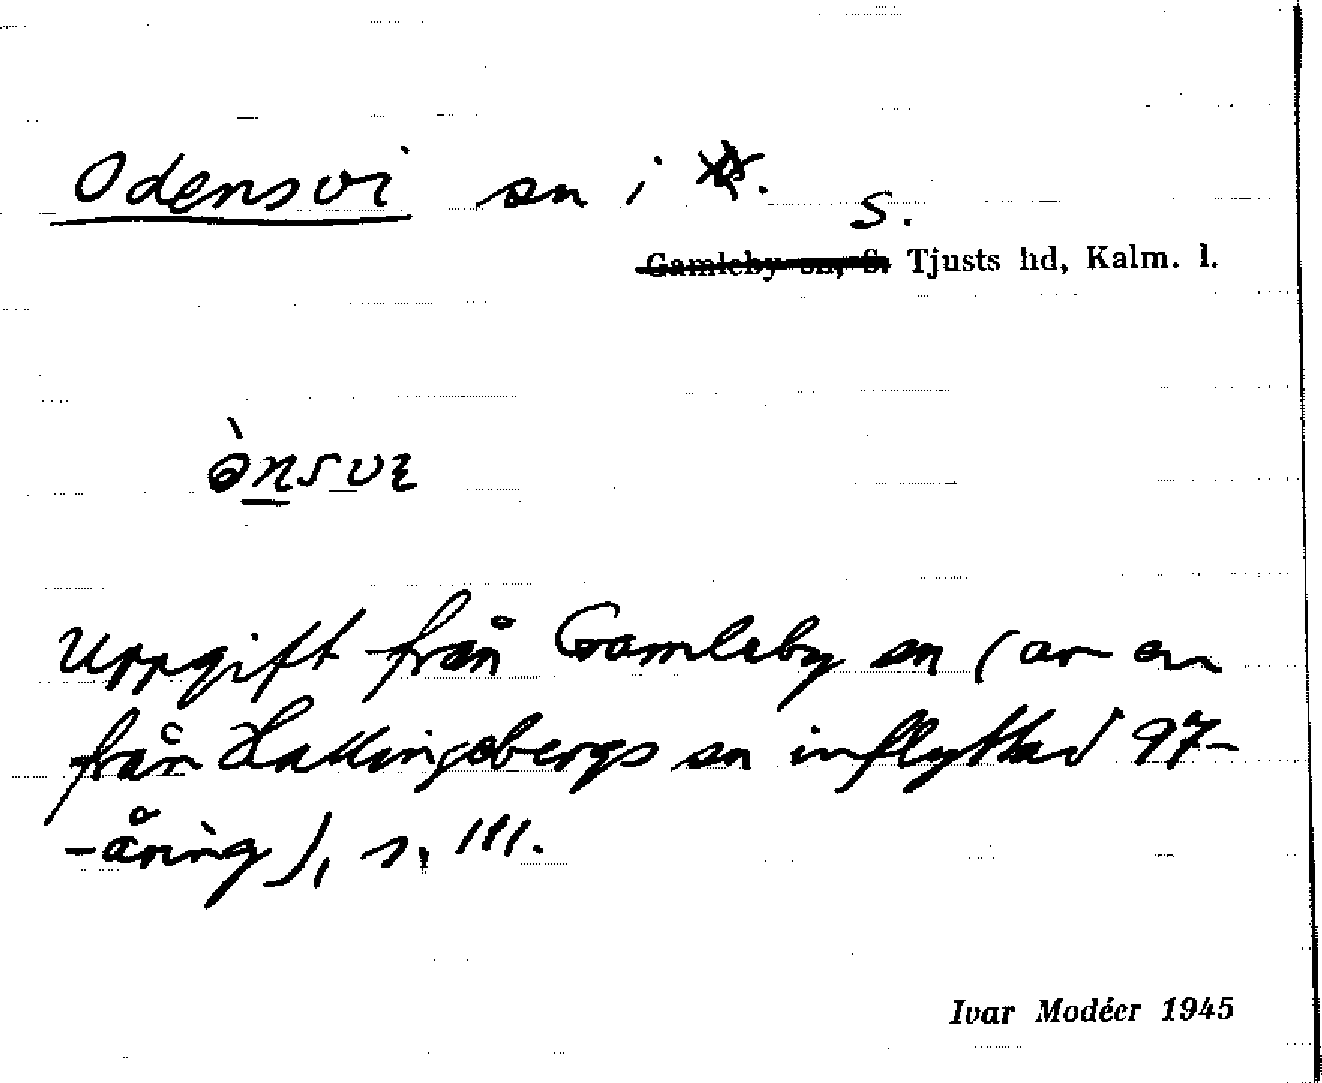 Odensvi sn i
S.
Gamleby sn, S. Tjusts hd, Kalm. l.
ə̀nsvɪ
Uppgift från Gamleby sn (av en
från Hallingebergs sn inflyttad 97-
-åring), s. 111.
Ivar Modéer 1945